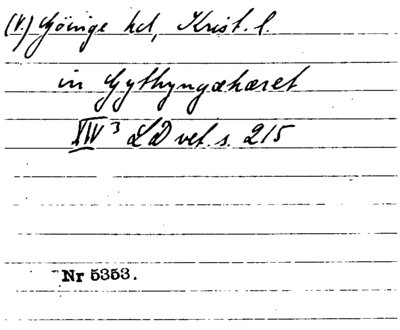 (V.) Göinge hd, Krist. l.
in Gythyngæhæret
XIV 3 LD vet. s. 215
Nr 5353.